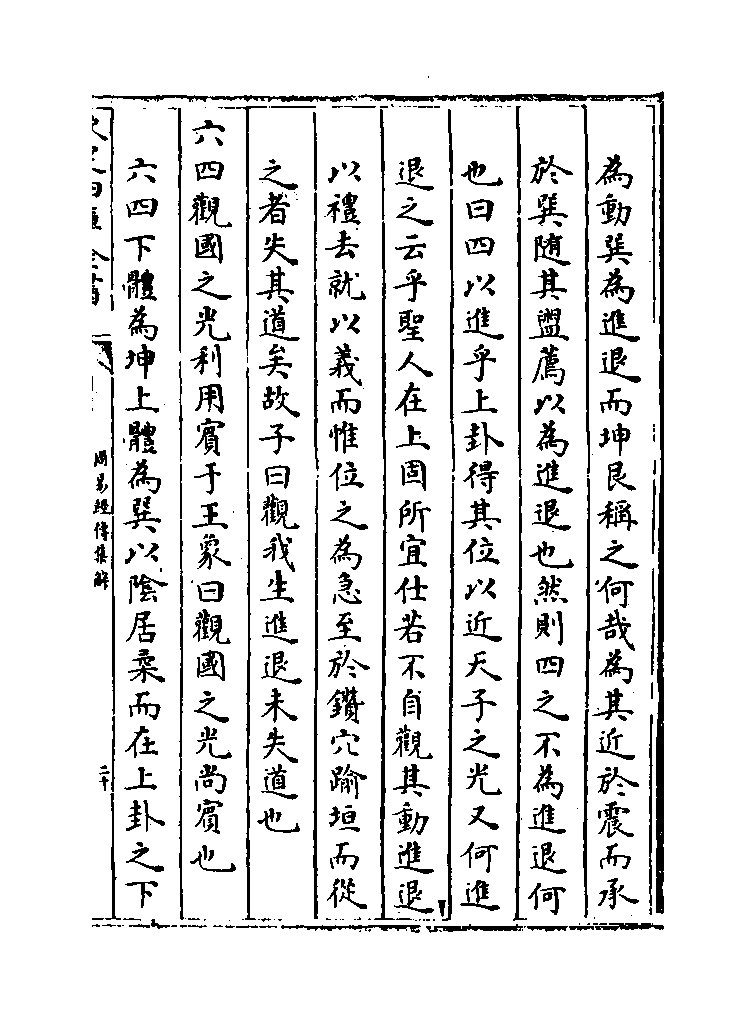 為動巽為進退而坤艮稱之何哉為其近於震而承
於巽随其盥薦以為進退也然則四之不為進退何
也曰四以進乎上卦得其位以近天子之光又何進
退之云乎聖人在上固所宜仕若不自觀其動進退
以禮去就以義而惟位之為急至於鑽穴踰垣而從
之者失其道矣故子曰觀我生進退未失道也
六四觀國之光利用賓于王象曰觀國之光尚賓也
六四下體為坤上體為巽以陰居柔而在上卦之下
周易經傳集解
二十